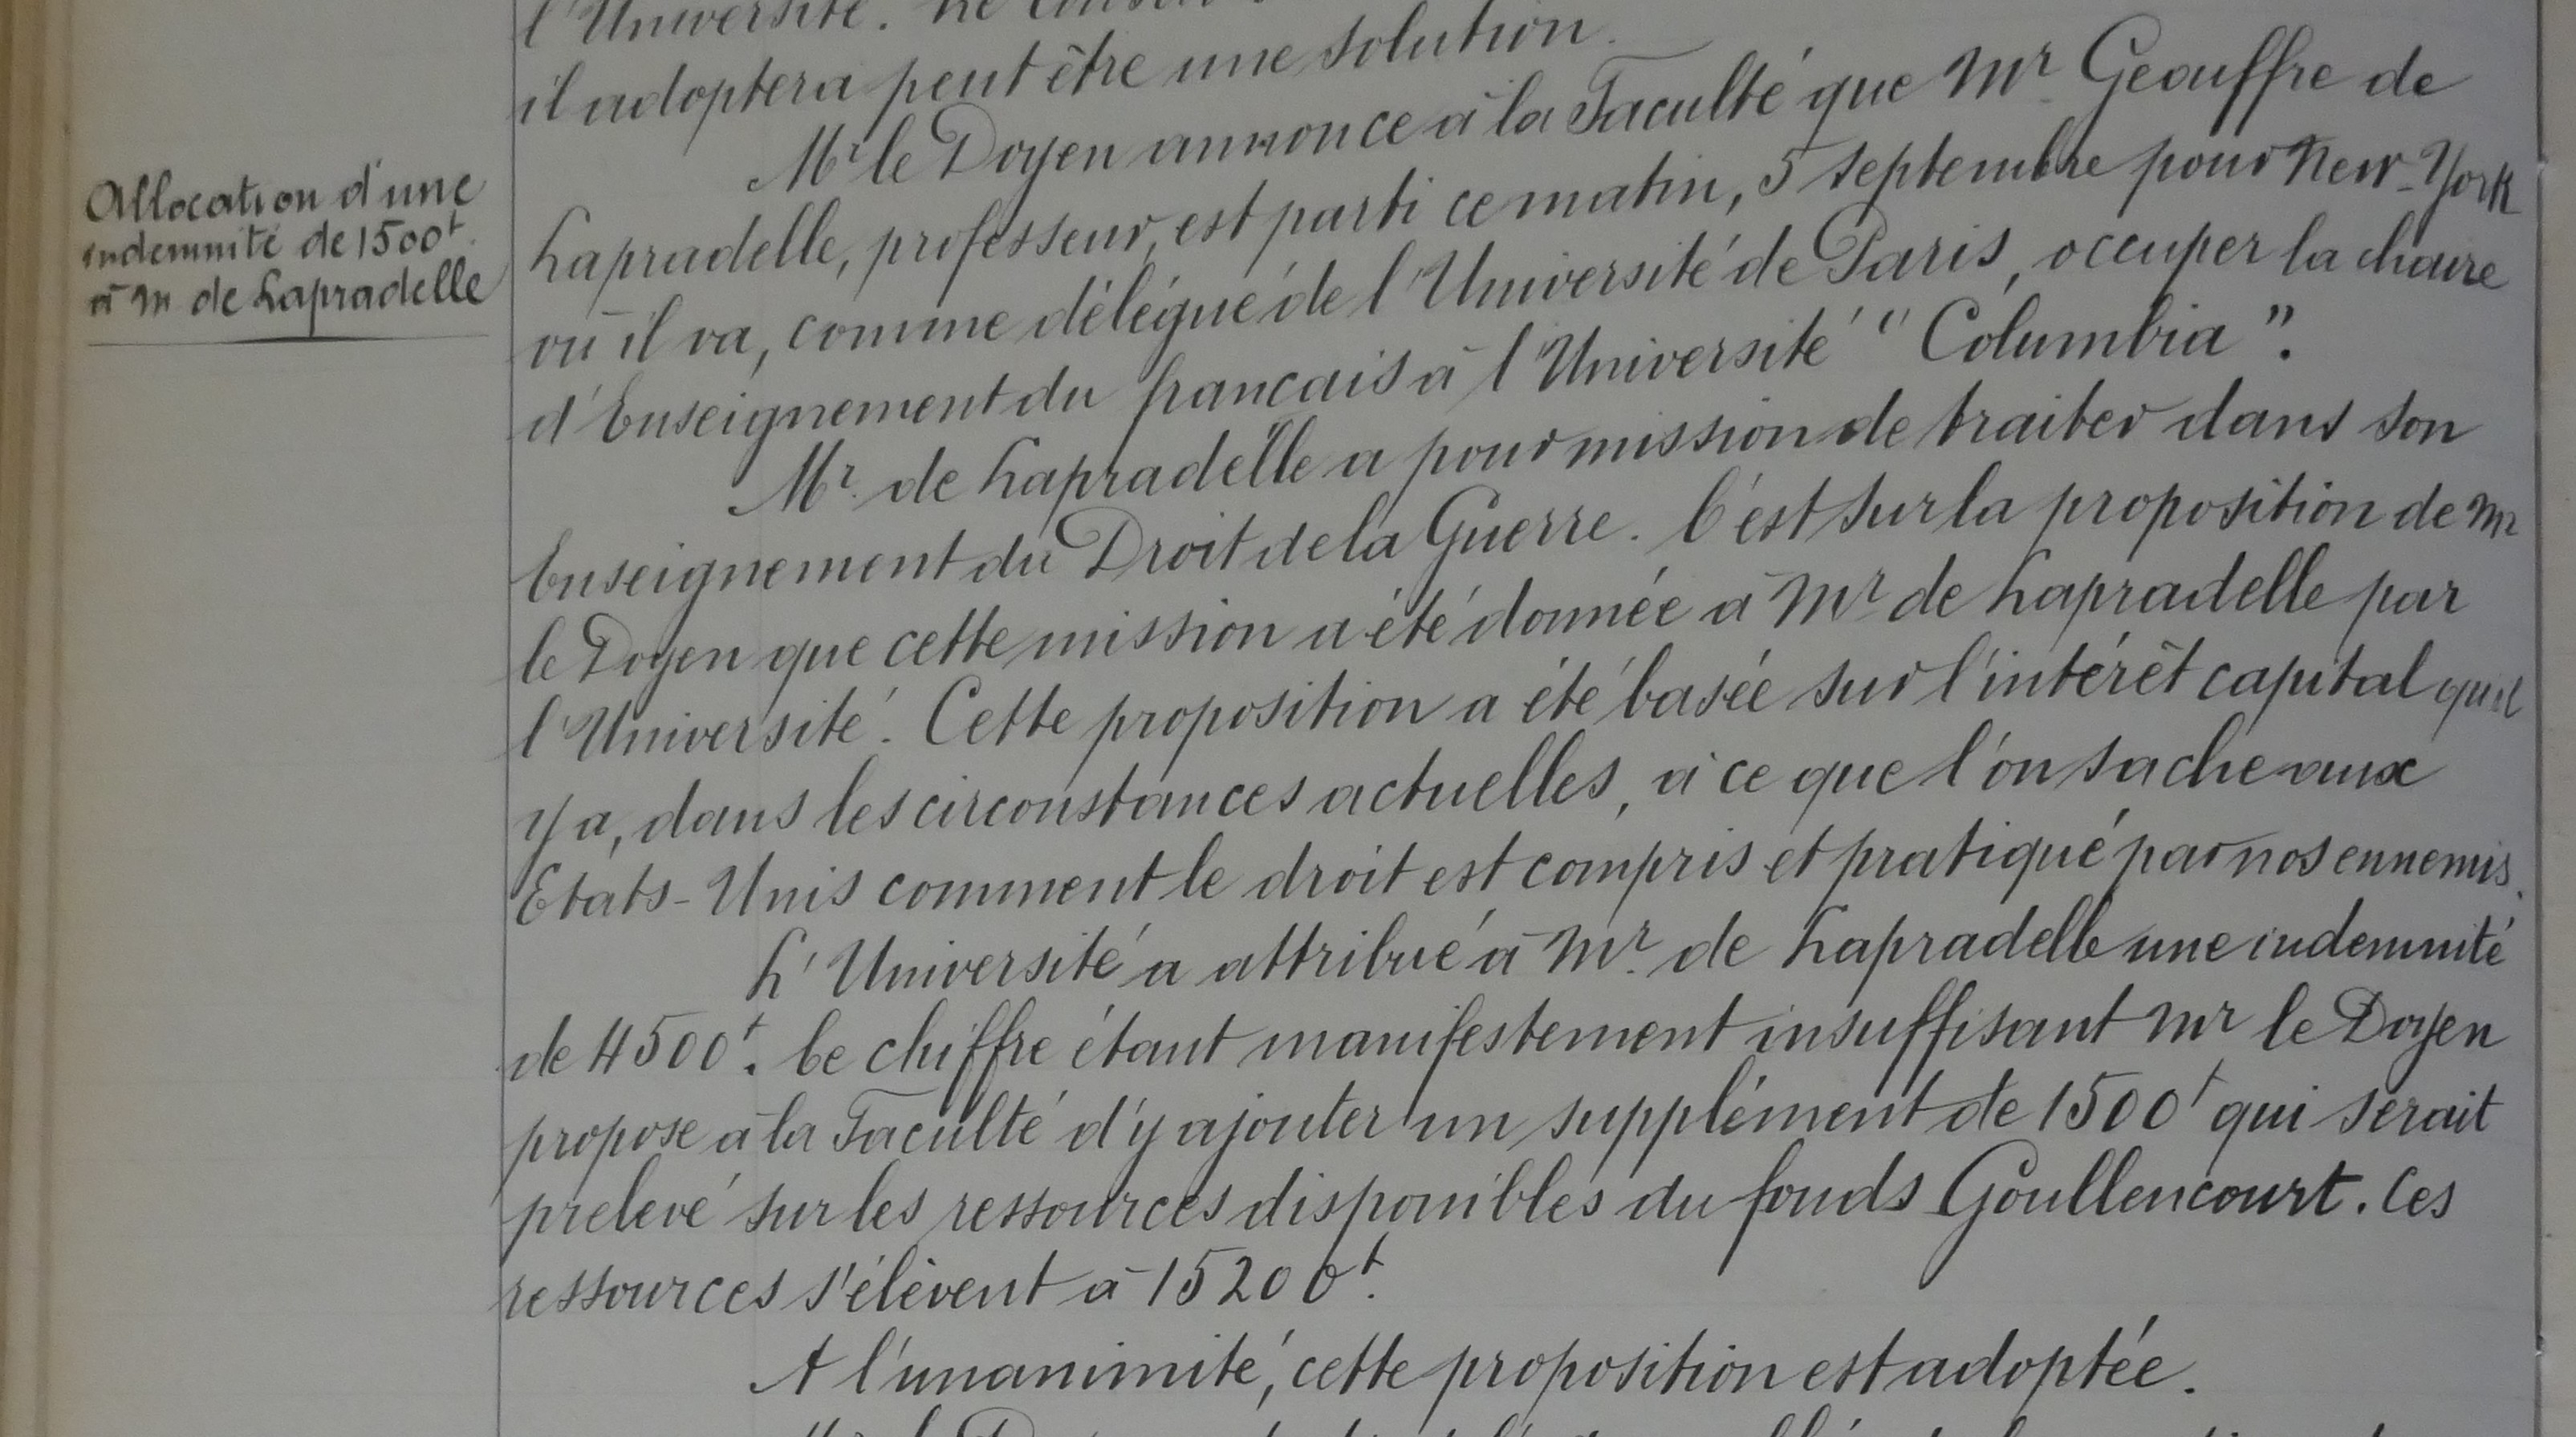 l'Université. Le
il adoptera peut être une solution.
Mr le Doyen annonce à la Faculté que Mr Geouffre de
Allocation d'une
indemnité de 1500f.
à M de Lapradelle
Lapradelle, professeur, est parti ce matin, 5 septembre pour New-York
où il va, comme délégué de l'Université de Paris, occuper la chaire
d'Enseignement du français à l'Université "Columbia".
Mr. de Lapradelle a pour mission de traiter dans son
Enseignement du Droit de la Guerre. C'est sur la proposition de Mr
le Doyen que cette mission a été donnée à Mr de Lapradelle par
l'Université. Cette proposition a été basée sur l'intérêt capital qu'il
y a, dans les circonstances actuelles, à ce que l'on sache aux
Etats-Unis comment le droit est compris et pratiqué par nos ennemis.
L'Université a attribué à Mr. de Lapradelle une indemnité
de 4500f. Ce chiffre étant manifestement insuffisant Mr le Doyen
propose à la Faculté d'y ajouter un supplément de 1500f qui serait
prelevé sur les ressources disponibles du fonds Goullencourt. Ces
ressources s'élèvent à 15200f.
A l'unanimité, cette proposition est adoptée.